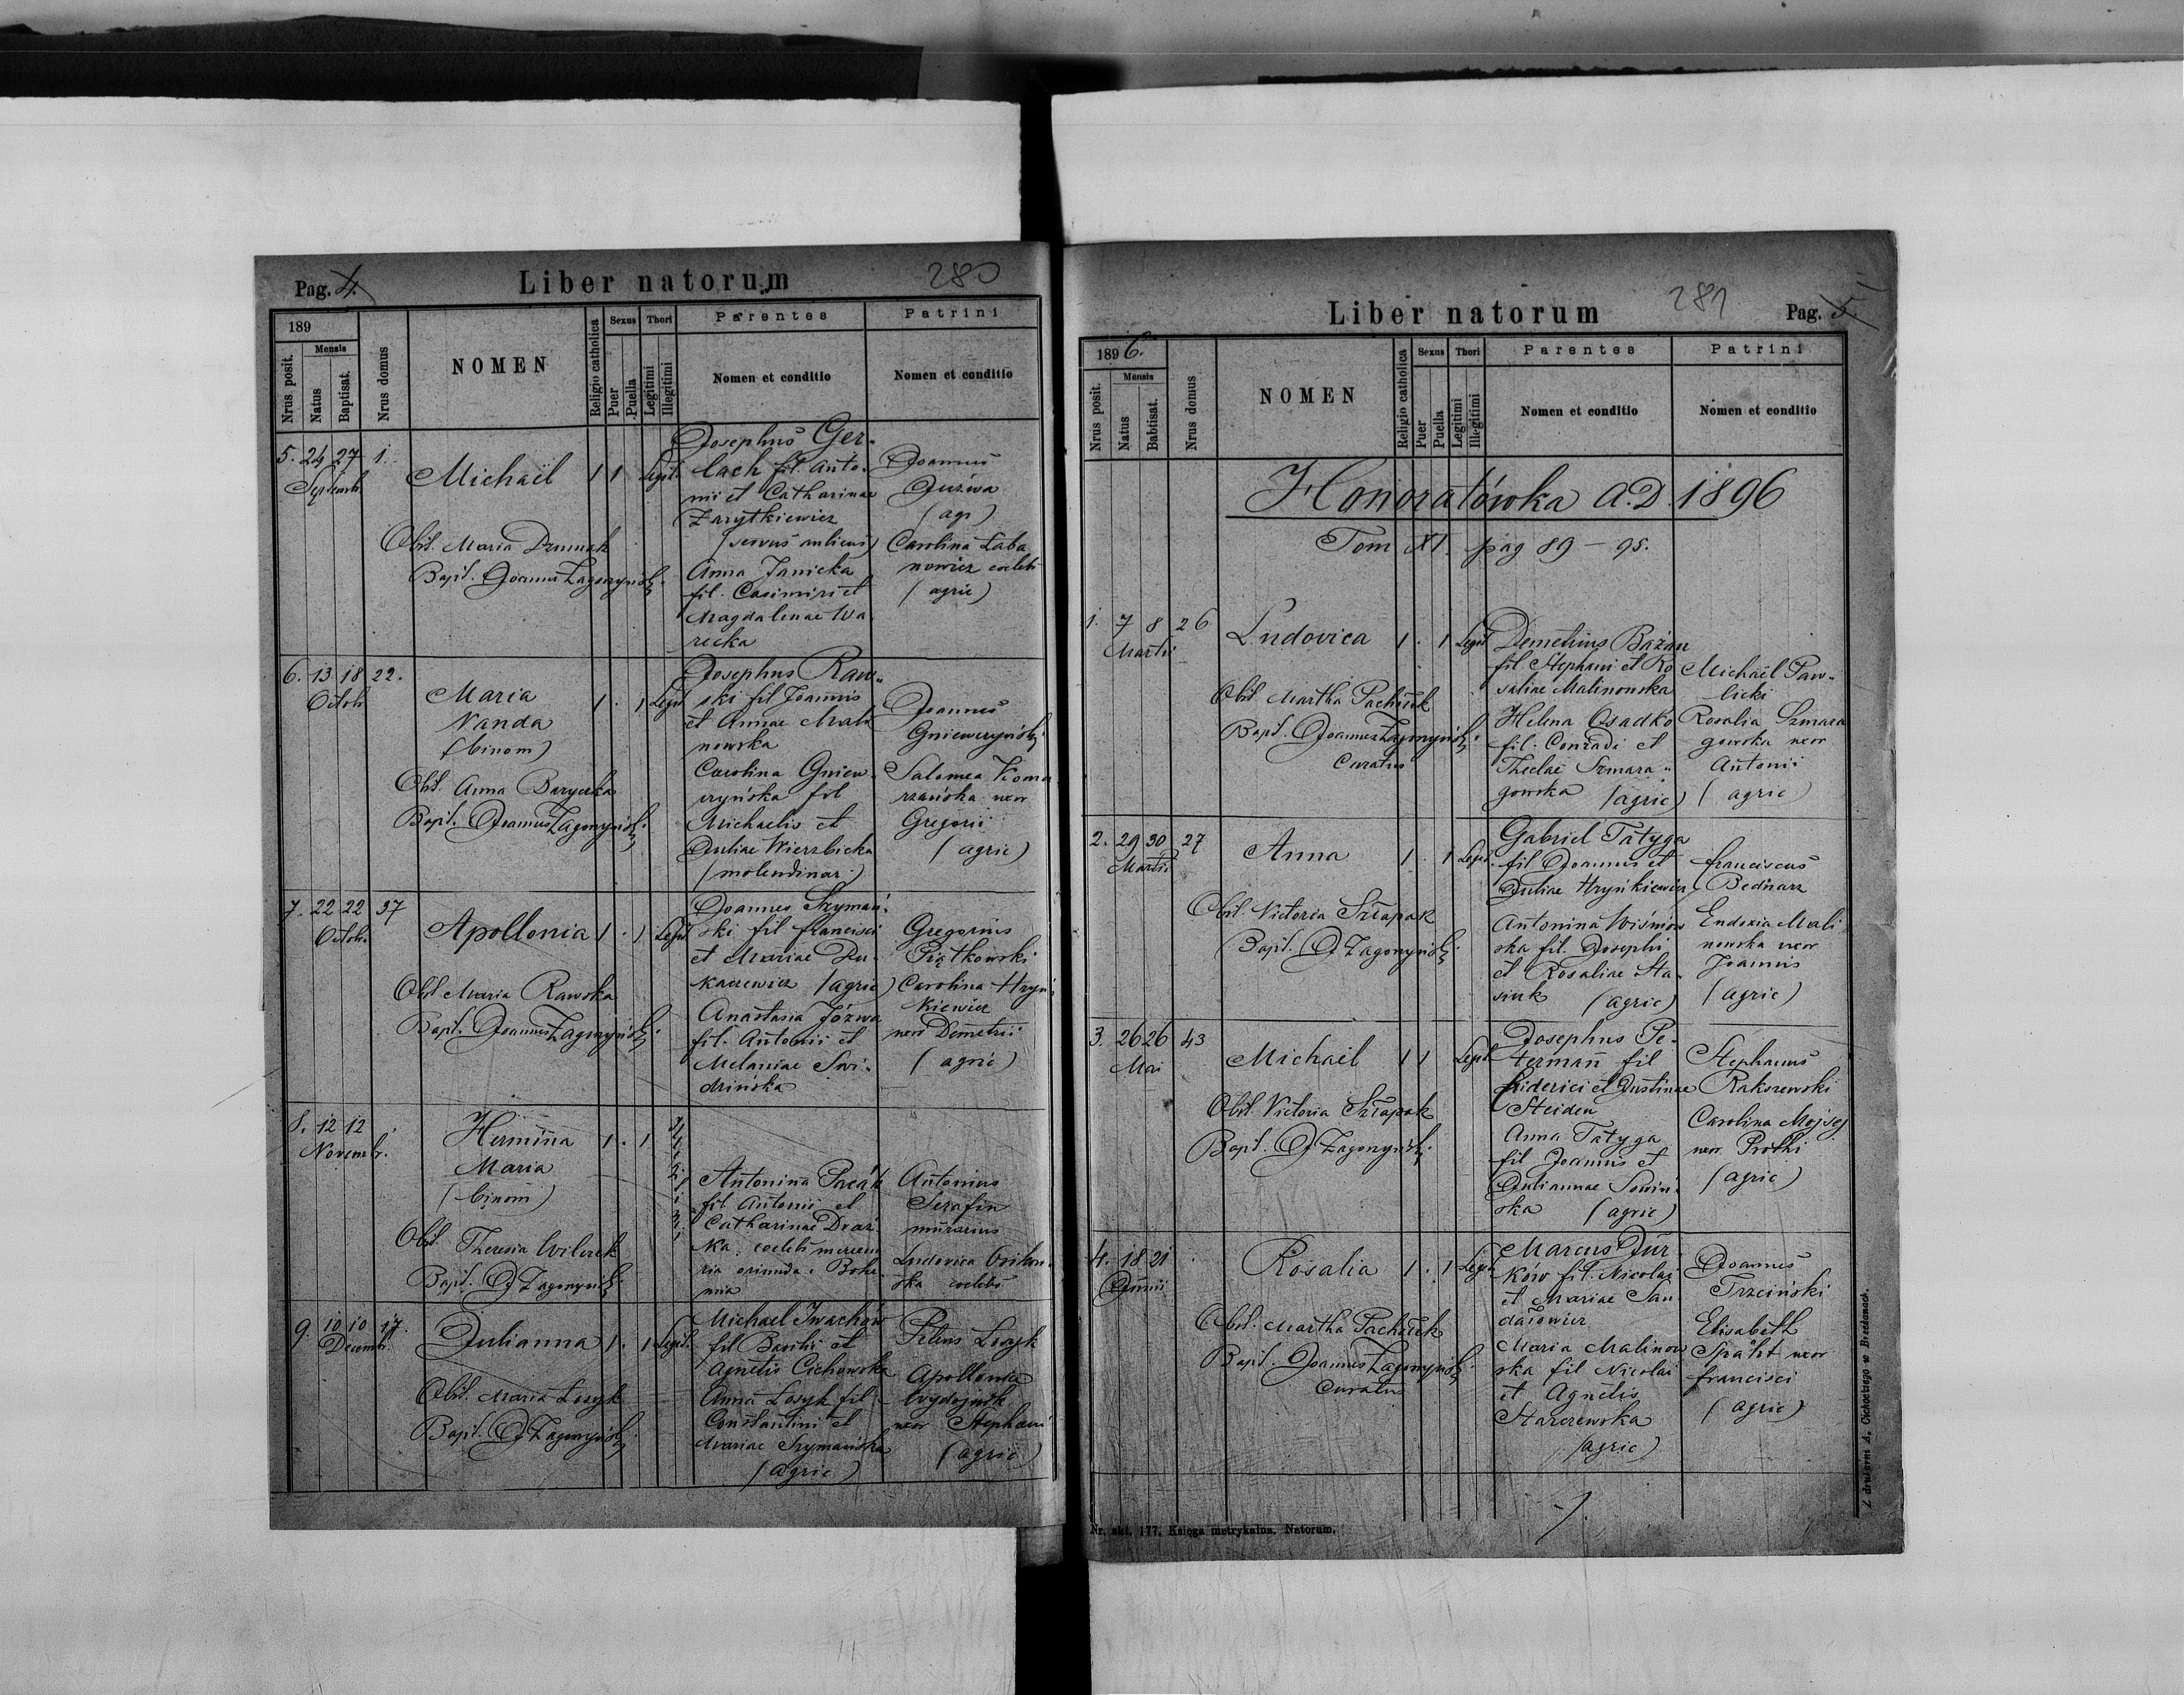 Pag. 4.
Liber natorum
280
189
Nrus posit.
Mensis
Natus
Baptisat.
Nrus domus
NOMEN
Religio catholica
Sexus
Puer
Puella
Thori
Legitimi
Illegitimi
Parentes
Nomen et conditio
Patrini
Nomen et conditio
5. 24 27 1.
Septemb.
Michaël
1 1 Legit.
Obst. Maria
Bapt. Joannes Zagórzyński
Josephus Ger-
lach fil. Anto-
nii et Catharinae
Zarytkiewicz
(servus aulicus)
Anna Janicka
fil. Casimiri et
Magdalenae Wa-
recka
Joannes
Juźwa
(agr)
Carolina Łaba
nowicz coelebs
(agric)
6. 13 18 22.
Octob
Maria
Vanda
(binom)
1 . 1 Legit
Obst. Anna Barycka
Bapt. Joannes Zagórzyński
Josephus Raw-
ski fil Joannis
et Annae Mali
nowska
Carolina Gniew-
czyńska fil
Michaelis et
Juliae Wierzbicka
(molendinar)
Joannes
Gniewczyński
Salomea Koma
rzańska uxor
Gregorii
(agric)
7. 22 22 37
Octob.
Apollonia
1 . 1 Legit
Obst Maria Rawska
Bapt. Joannes Zagórzyński
Joannes Szymań-
ski fil Francisci
et Mariae Łu-
kaszewicz (agric)
Anastasia Józwa
fil. Antonii et
Melaniae Swi-
drińska
Gregorius
Piątkowski
Carolina Hryni
kiewicz
uxor Demetrii
(agric)
8. 12 12 .
Novemb.
Hermina
Maria
(binom)
1 . 1
Illegitimi
Obst. Theresia Wilczek
Bapt. J Zagórzyński
Antonina
fil Antonii et
Catharinae
coelebs
oriunda e Bohe
mia
Antonius
Serafin
murarius
Ludovica
ska coelebs
9. 10 10 17.
Decemb.
Julianna
1 . 1 Legit.
Obst. Maria Łozyk
Bapt. J Zagórzyński
Michael Iwachów
fil Basilii et
Agnetis Cichowska
Anna Łozyk fil
Constantini et
Mariae Szymańska
(agric)
Petrus Łozyk
Apollonia
uxor Stephani
(agric)
Liber natorum
281
Pag. 5.
1896.
Nrus posit.
Mensis
Natus
Babtisat.
Nrus domus
NOMEN
Religio catholica
Sexus
Puer
Puella
Thori
Legitimi
Illegitimi
Parentes
Nomen et conditio
Patrini
Nomen et conditio
Honoratówka A.D. 1896
Tom XI. pag 89 - 95.
1. 7 8 26
Martii
Ludovica
1 . 1 Legit
Obst Martha Pachółek
Bapt. Joannes Zagórzyński
Curatus
Demetrius Bażan
fil Stephani et Ro
saliae Malinowska
Helena Osadko
fil. Conradi et
Theclae Szmara-
gowska (agric)
Michaël Paw-
licki
Rosalia Szmara
gowska uxor
Antonii
(agric)
2. 29 30 27
Martii
Anna
1 . 1 Legit.
Obst. Victoria Szłapak
Bapt. J Zagórzyński
Gabriel Tatyga
fil Joannis et
Juliae Hryńkiewicz
Antonina Wiśniow
ska fil. Josephi
et Rosaliae Sta-
siuk (agric)
Franciscus
Bednarz
Eudoxia Mali
nowska uxor
Joannis
(agric)
3. 26 26 43
Mai
Michaël
1 1 Legit
Obst. Victoria Szłapak
Bapt. J Zagórzyński
Josephus Pe-
terman fil
Friderici et Justinae
Steiden
Anna Tatyga
fil Joannis et
Juliannae Sowiń-
ska (agric)
Stephanus
Rakszewski
Carolina Mojsej
uxor Prothi
(agric)
4. 18 21 .
Junii
Rosalia
1 . 1 Legit
Obst. Martha Pachółek
Bapt. Joannes Zagórzyński
Curatus
Marcus Jur-
ków fil. Nicolai
et Mariae San
darowicz
Maria Malinow
ska fil Nicolai
et Agnetis
Starzewska
(agric)
Joannes
Trzciński
Elisabeth
Späht uxor
Francisci
(agric)
Nr. skł. 177. Księga metrykalna. Natorum.
Z drukarni A. Cichockiego w Brzeżanach.